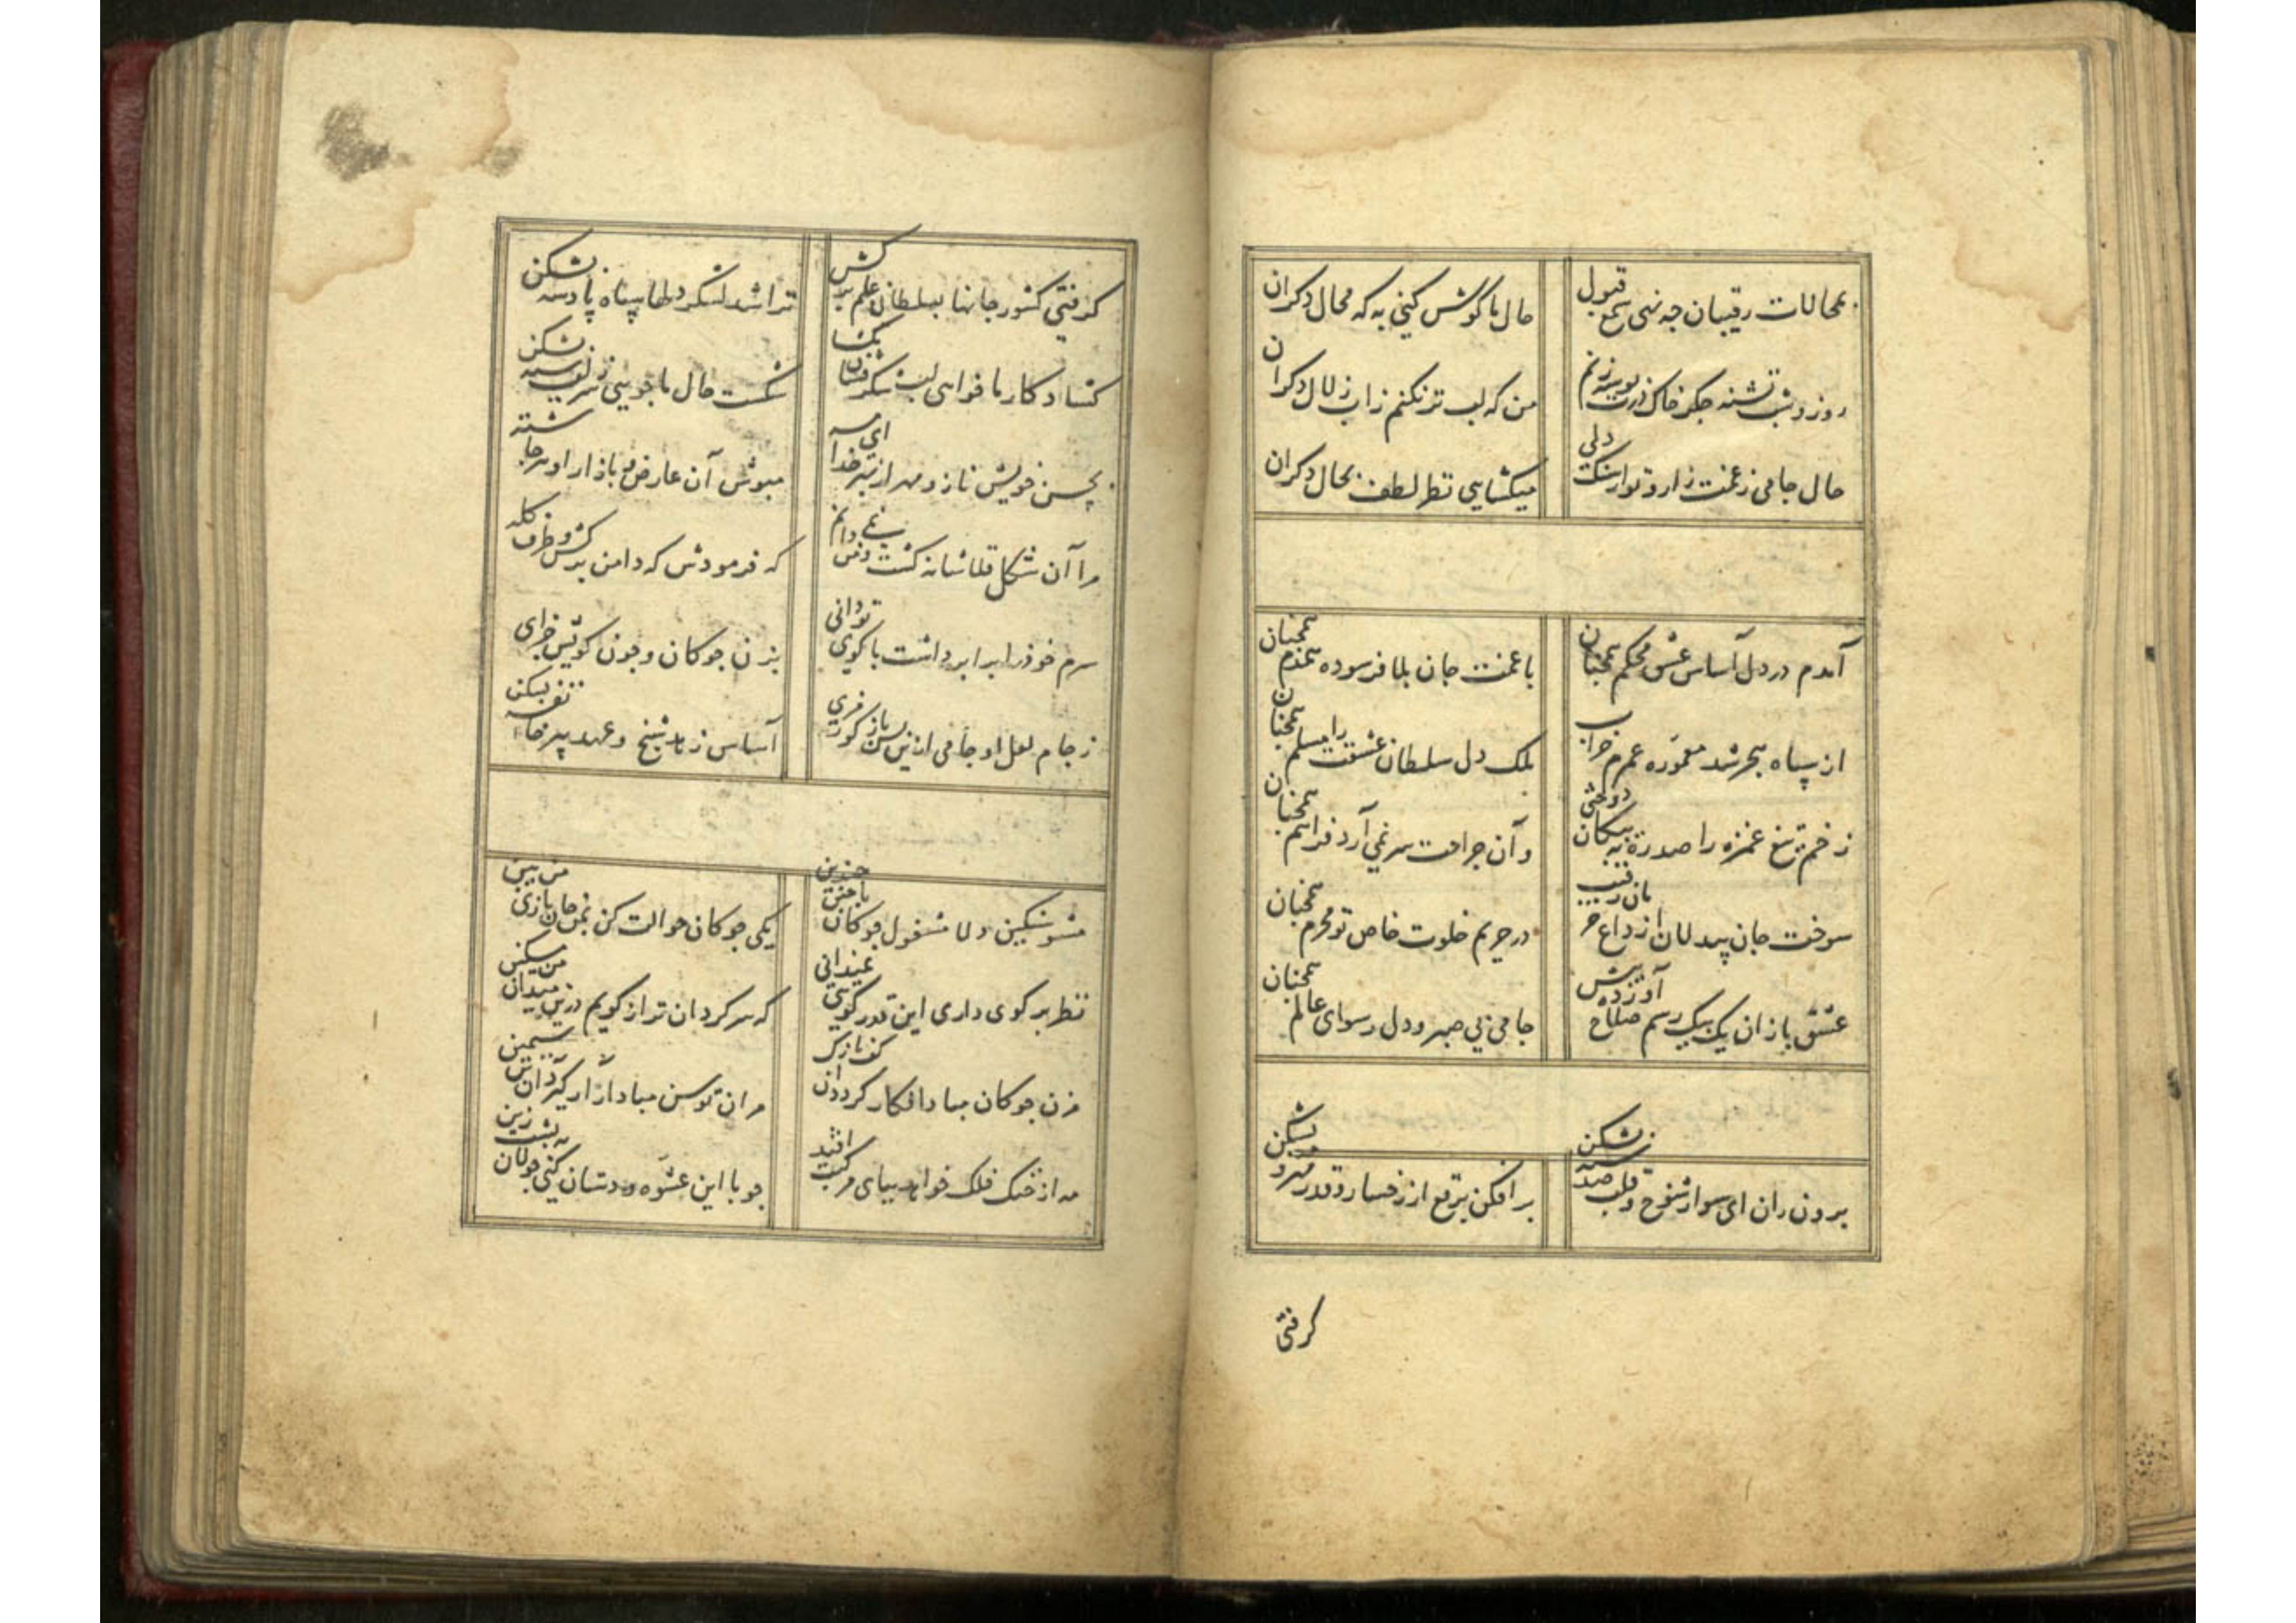 بمحالات رقیبان چه نهی سمع قبول
حال ما گوش کنی به که محال دکران
روز و شب تشنه جکر خاک درت بوسه زنم
من که لب تر نکنم ز آب زلال دکران
حال جامی ز غمت زار و تو از سنک دلی
میکشایی نظر لطف بحال دکران
آمدم در دل آساس عشق محکم همچنان
با غمت جان بلا فرسوده همدم همچنان
از سپاه هجر شد معموره عمرم خراب
ملک دل سلطان عشقت را مسلم همچنان
زخم تیغ غمزه را صد ره به پیکان دوختی
و آن جراحت سر نمی آرد فراهم همچنان
سوخت جان بیدلان از داغ حرمان رقیب
در حریم خلوت خاص تو محرم همچنان
عشق بازان یک بیک رسم صلاح آورده پیش
جامی بی صبر و دل رسوای عالم همچنان
برون ران ای سوار شوخ و قلب صد سپه بشکن
بر افکن برقع از رخسار و قدر مهر و مه بشکن
کرفتی
کرفتی کشور جانها بسلطانی علم برکش
ترا شد لشکر دلها سپاه پادشه بشکن
کشاد کار ما خواهی لب شکر فشان بکشا
شکست حال ما جویی سر زلف سیه بشکن
بحسن خویش ناز و مهر از بهر خدا ای مه
مپوش آن عارض و بازار او هر جا
مرا آن شکل قلاشانه کشت و من نمی دانم
که فرمودش که دامن برکش و طرف کله
سرم خود را برابر داشت با کوی تو دانی
بزن چوکان و چون کویش جزای
ز جام لعل او جامی ازین پس باز کوری
آساس زهد شیخ و عهد پیر خانقه بشکن
مشو سنکین دلا مشغول چوکان باختن چندین
یکی چوکان حوالت کن بمن جان بازی من بین
نظر بر کوی داری این قدر کویی نمیدانی
که سر کردان تر از کویم درین میدان من مسکین
مزن چوکان مبادا افکار کردد آن کف نازک
مران توسن مبادا آزار کیرد آن تن سیمین
مه از خنک فلک خواهد بپای مرکبت افتد
چو با این عشوه و دستان کنی جولان به پشت زین